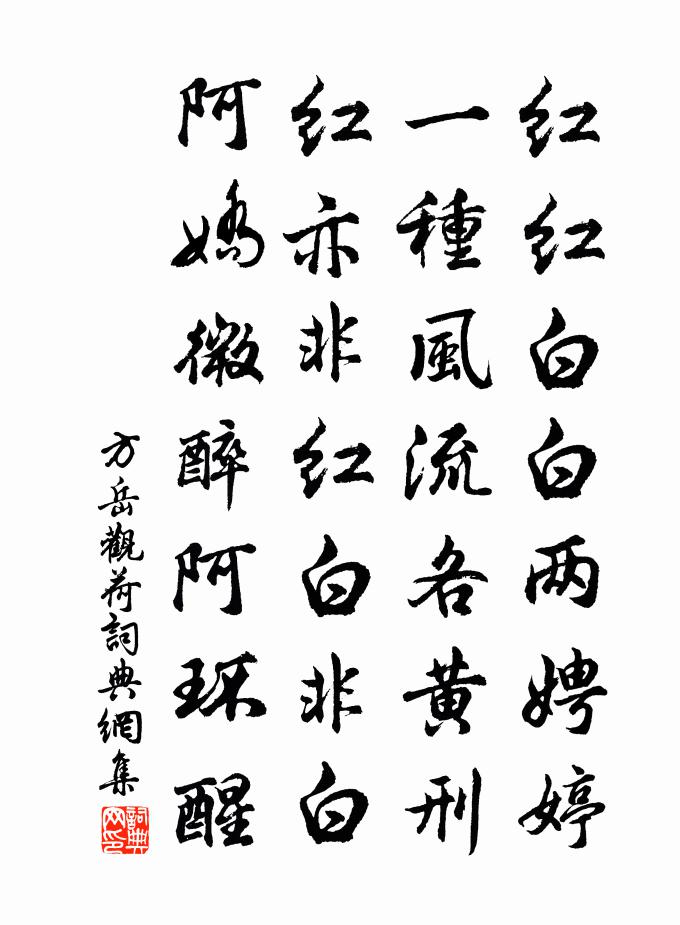 红红白白两娉婷
一種風流各黄刑
红亦非红白非白
阿嬌微醉阿環醒
方岳觀荷詞典網集
詞典网印